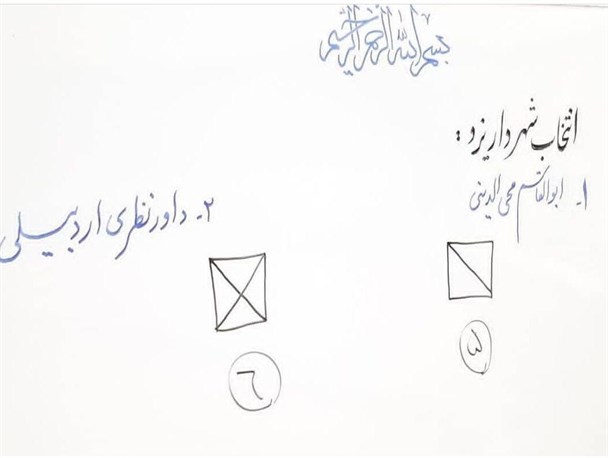 بسم الله الرحمن الرحیم
انتخاب شهردار یزد :
۱- ابوالقاسم محی الدینی
۲- داور نظری اردبیلی
۵
۶